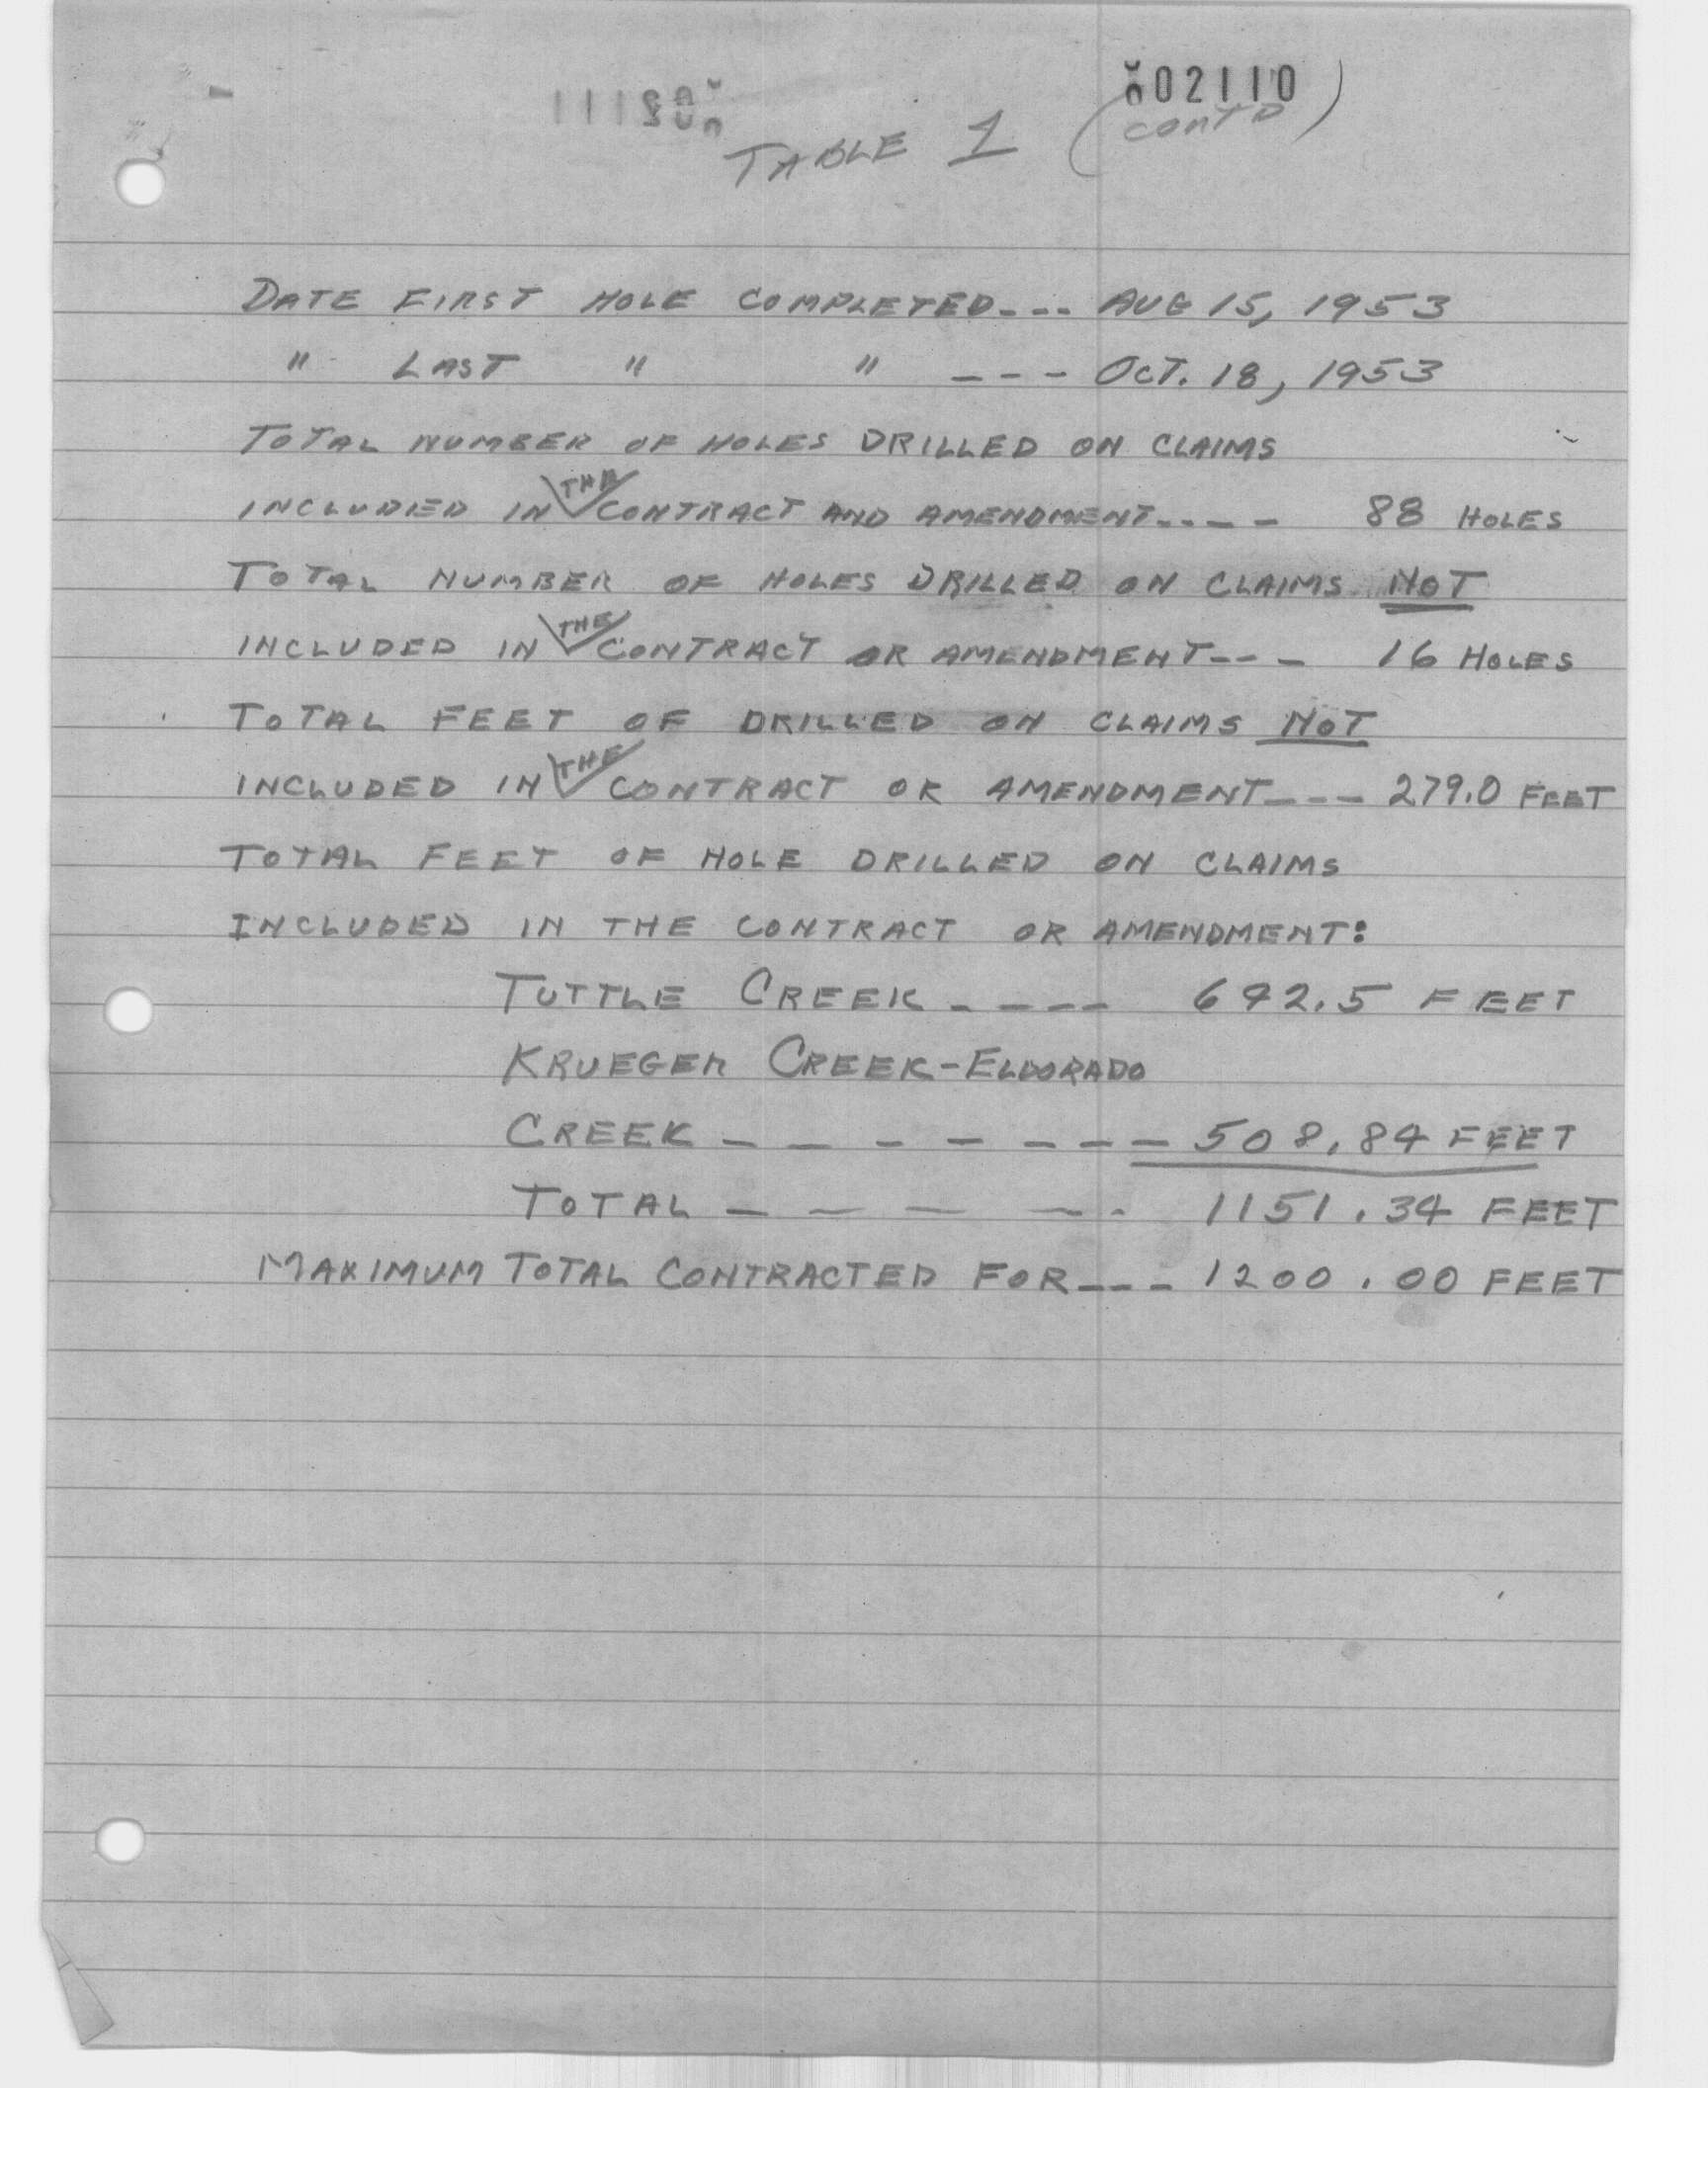 002110
TABLE 1 (CONT'D)
DATE FIRST HOLE COMPLETED--- AUG 15, 1953
" LAST " " --- OCT. 18, 1953
TOTAL NUMBER OF HOLES DRILLED ON CLAIMS
INCLUDED IN THE CONTRACT AND AMENDMENT---- 88 HOLES
TOTAL NUMBER OF HOLES DRILLED ON CLAIMS NOT
INCLUDED IN THE CONTRACT OR AMENDMENT--- 16 HOLES
TOTAL FEET OF DRILLED ON CLAIMS NOT
INCLUDED IN THE CONTRACT OR AMENDMENT--- 279.0 FEET
TOTAL FEET OF HOLE DRILLED ON CLAIMS
INCLUDED IN THE CONTRACT OR AMENDMENT:
TUTTLE CREEK---- 642.5 FEET
KRUEGER CREEK-ELDORADO
CREEK ------- 508.84 FEET
TOTAL ----- 1151.34 FEET
MAXIMUM TOTAL CONTRACTED FOR--- 1200.00 FEET